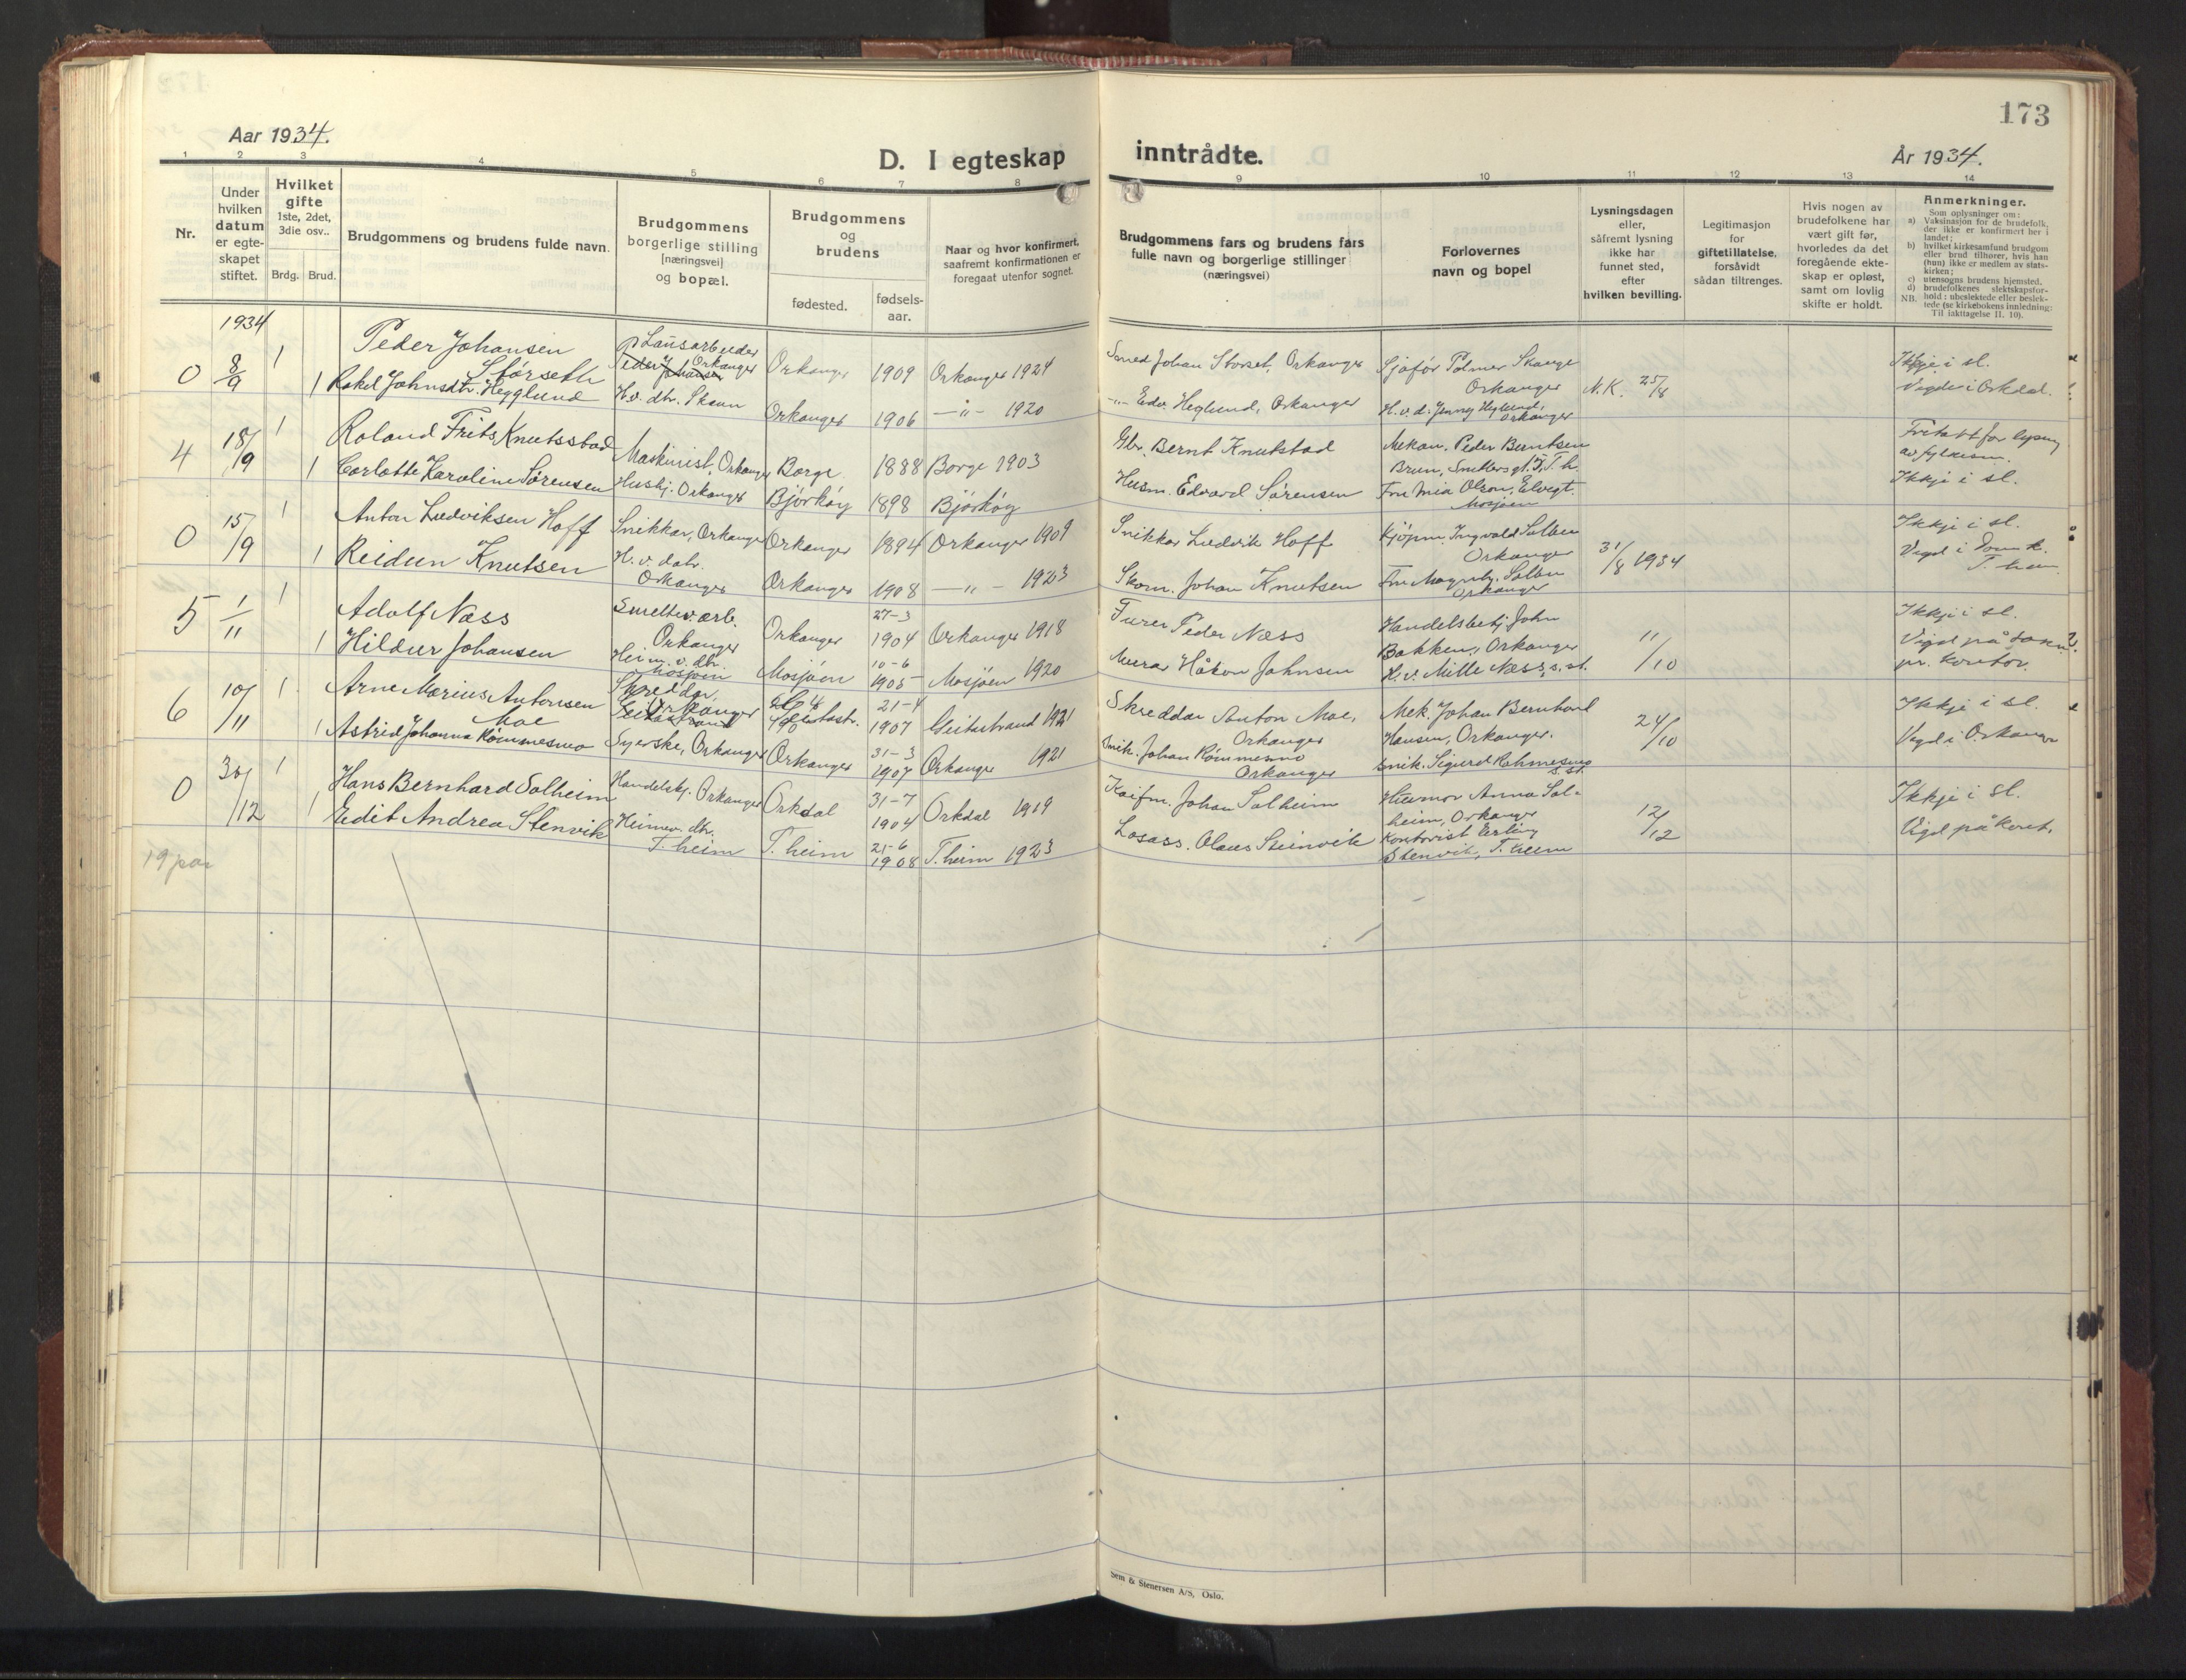 173
Aar 1934.
D. I egteskap
inntrådte.
År 1934.
1 2 3 4 5 6 7 8 9 10 11 12 13 14
Nr.
Under
hvilken
datum
er egte-
skapet
stiftet.
Hvilket
gifte
1ste, 2det,
3die osv..
Brdg. Brud.
Brudgommens og brudens fulde navn.
Brudgommens
borgerlige stilling
[næringsvei]
og bopæl.
Brudgommens
og
brudens
fødested.
fødsels-
aar.
Naar og hvor konfirmert,
saafremt konfirmationen er
foregaat utenfor sognet.
Brudgommens fars og brudens fars
fulle navn og borgerlige stillinger
(næringsvei)
Forlovernes
navn og bopel
Lysningsdagen
eller,
såfremt lysning
ikke har
funnet sted,
efter
hvilken bevilling.
Legitimasjon
for
giftetillatelse,
forsåvidt
sådan tiltrenges.
Hvis nogen av
brudefolkene har
vært gift før,
hvorledes da det
foregående ekte-
skap er opløst,
samt om lovlig
skifte er holdt.
Anmerkninger.
Som oplysninger om:
a) Vaksinasjon for de brudefolk,
der ikke er konfirmert her i
landet;
b) hvilket kirkesamfund brudgom
eller brud tilhører, hvis han
(hun) ikke er medlem av stats-
kirken;
c) utensogns brudens hjemsted.
d) brudefolkenes slektskapsfor-
hold: ubeslektede eller beslek-
tede (se kirkebokens innledning:
NB. Til iakttagelse II. 10).
1934
0 8/9 1 Peder Johansen
Størseth
Orkanger 1909 Orkanger 1924
Smed Johan Storset, Orkanger
Sjåfør Palmer Skauge
Orkanger
N.K. 25/8
Ikkje i sl.
Vigde i Orkdal.
1 Rakel Johnsdtr. Hegglund
H.v. dtr. Skaun
Orkanger 1906 —"— 1920
-"- Edv. Heglund, Orkanger
H.v.d. Jenny Heglund,
Orkanger
4 18/9 1 Roland Frits Knutssbad
Maskinist, Orkanger Borge 1888 Borge 1903
Gbr. Bernt Knutstad
Mekan. Peder Berntsen
Brun,
1 Carlotte Karoline Sørensen
Hushj. Orkanger Bjørkøy 1898 Bjørkøy
Husm. Edvard Sørensen
Fru Mia Olson, Elvegt.
Mosjøen
Ikkje i sl.
0 15/9 1 Anton Ludviksen Hoff
Snikkar, Orkanger Orkanger 1894 Orkanger 1909
Snikkar Ludvik Hoff
Kjøpm. Ingvald Solbu
Orkanger
31/8 1934
Ikkje i sl.
Vigd i Domk.
T. heim
1 Reidun Knutsen
H.v. datr.
Orkanger
Orkanger 1908 —"— 1923
Skom. Johan Knutsen
Solbu
Orkanger
5 1/11 1 Adolf Næss
Smeltev. arb.
Orkanger
Orkanger 27-3 1904 Orkanger 1918
Furer Peder Næss
Handelsbetj. John
Bakken, Orkanger
11/10
Ikkje i sl.
Vigd på
pr. kontor.
1 Hildur Johansen
Heim. v. dtr.
Mosjøen
Mosjøen 10-6 1905 Mosjøen 1920
Murar Håkon Johnsen
H.v. Mille Næss, s. st.
6 10/11 1 Arne Marius Antonsen
Moe
Skreddar,
Orkanger
Geitastrand
Geitastr. 21-4 1907 Geitastrand 1921
Skreddar Anton Moe,
Orkanger
Mek. Johan Bernhard
Hansen, Orkanger.
24/10
Ikkje i sl.
Vigd i Orkanger
1 Astrid Johanna Rømmesmo
Syerske, Orkanger Orkanger 31-3 1907 Orkanger 1921
Snik. Johan Rømmesmo
Orkanger
Snik. Sigurd Rømmesmo
s. st.
0 30/12 1 Hans Bernhard Solheim
Handelsbj. Orkanger Orkdal 31-7 1904 Orkdal 1919
Kaifm. Johan Solheim
Husmor Anna Sol-
heim, Orkanger
12/12
Ikkje i sl.
Vigd på kont.
1 Edit Andrea Stenvik
Heimev. dtr.
T. heim
T. heim 21-6 1908 T. heim 1923
Losass. Olaus Steinvik
Kontorist Erling
Stenvik, T. heim
19 par
Sem & Stenersen A/S, Oslo.